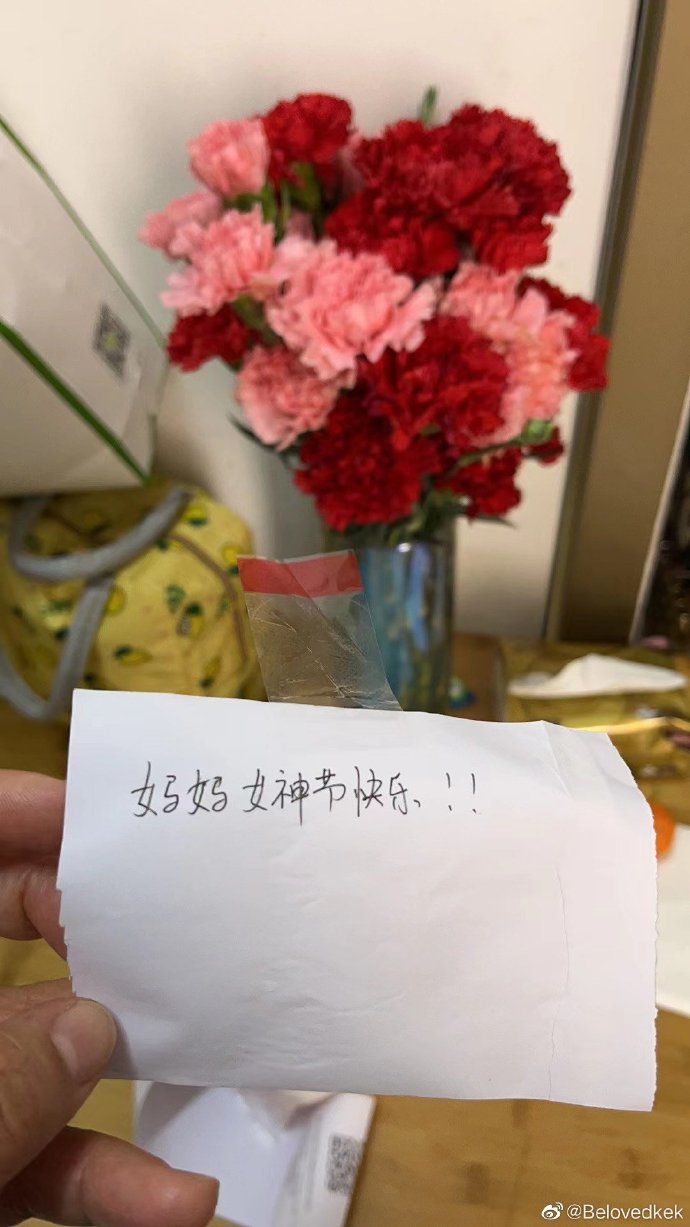 妈妈女神节快乐、!!
@Belovedkek